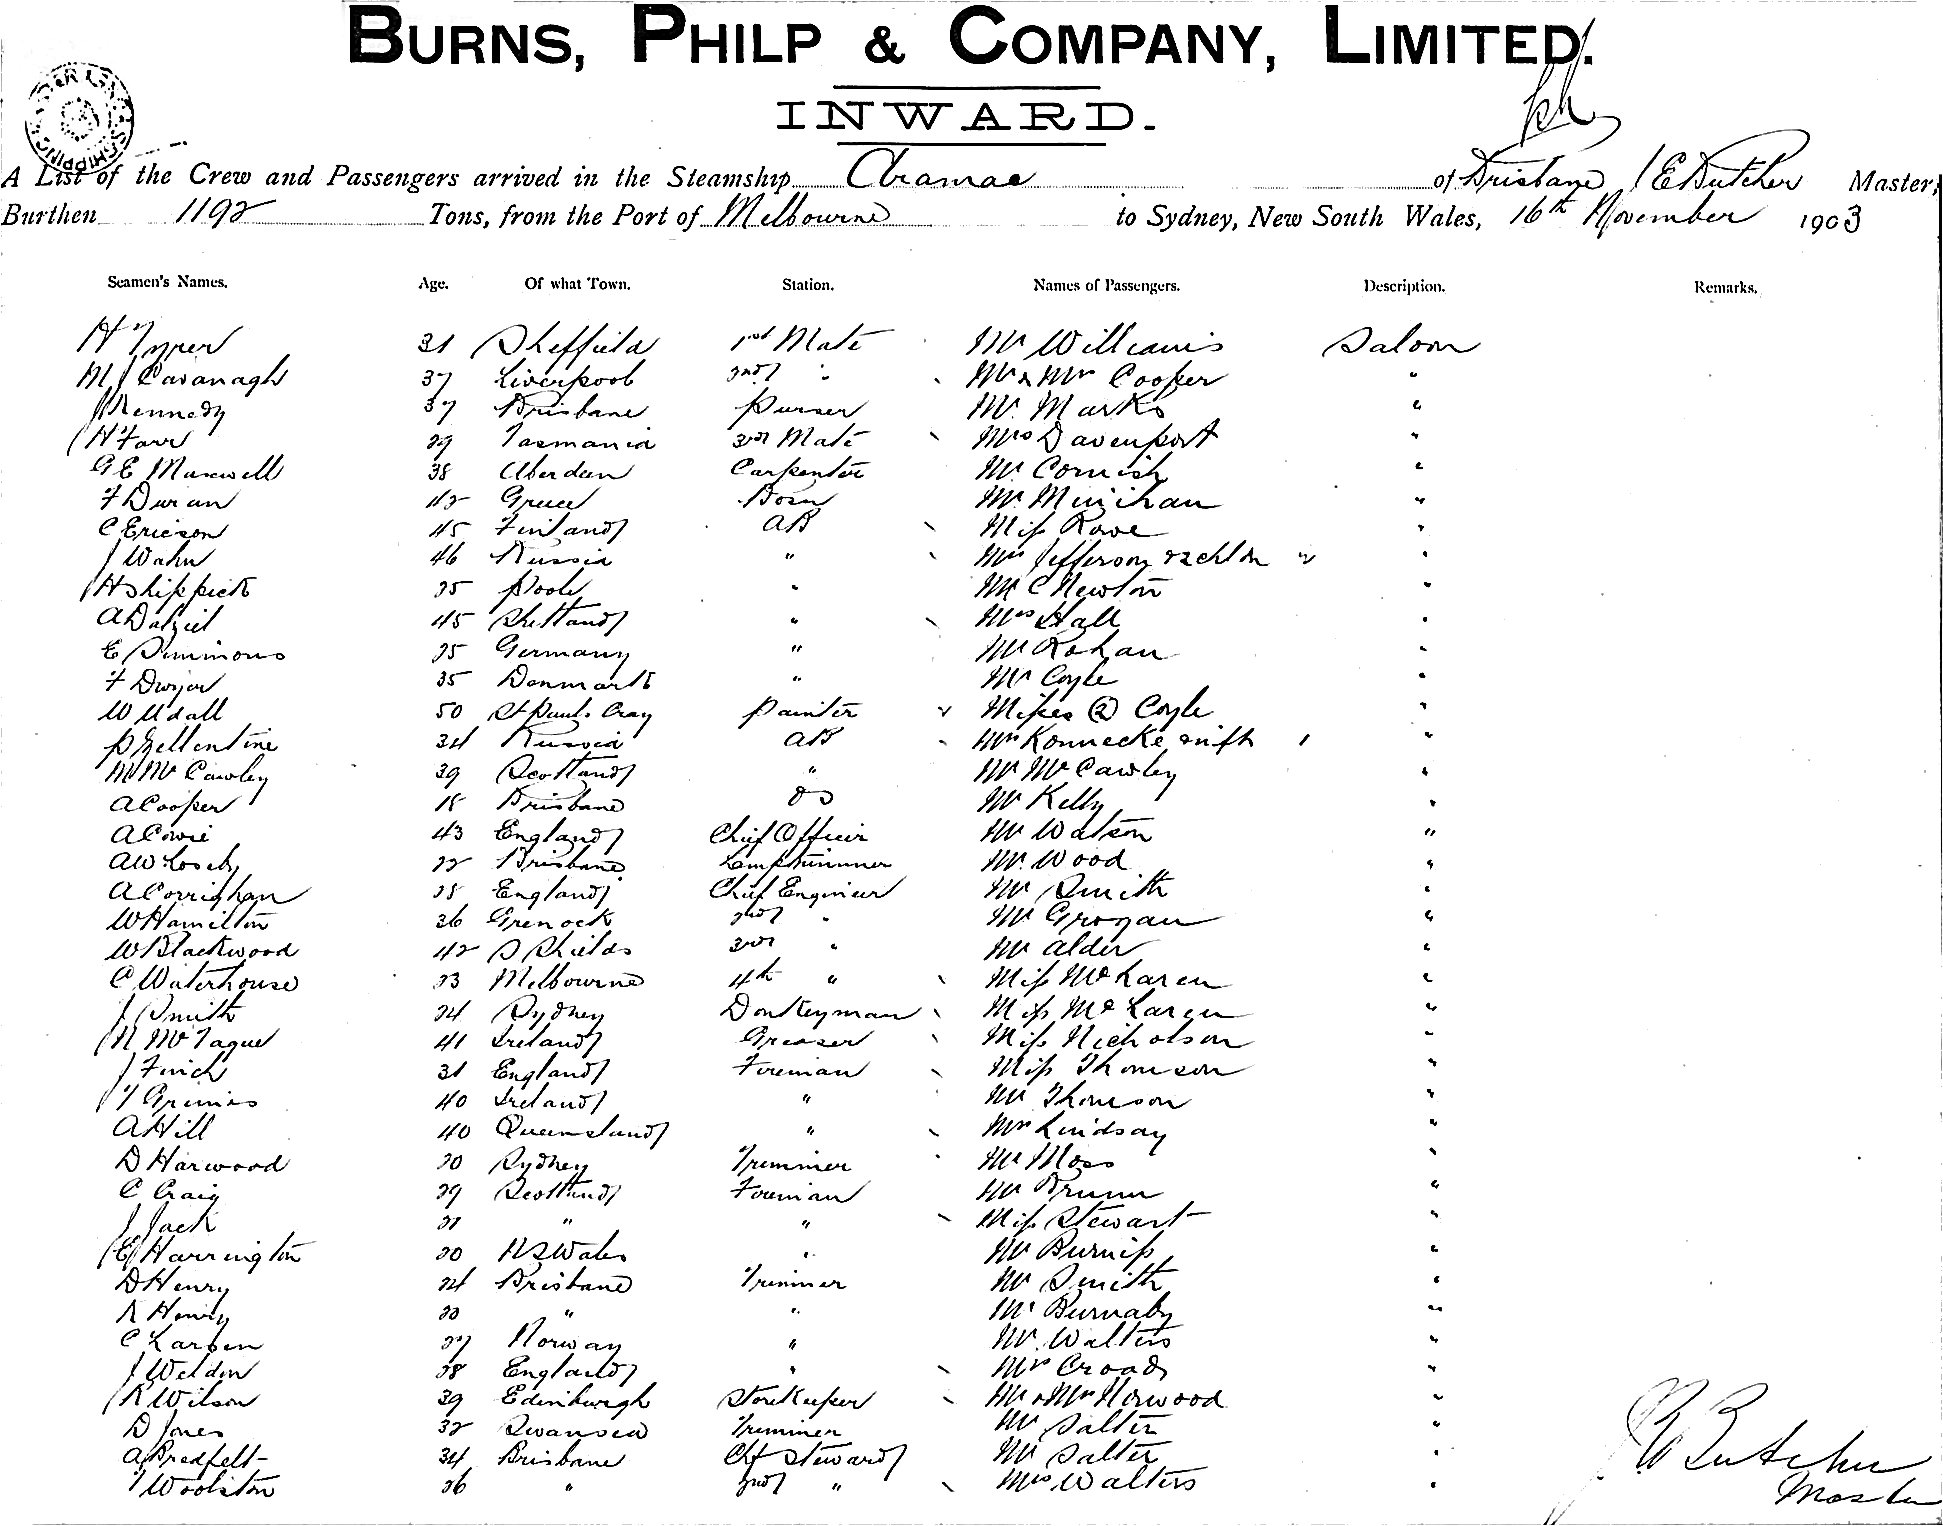 BURNS, PHILP & COMPANY, LIMITED.
INWARD.
A List of the Crew and Passengers arrived in the Steamship Aramac of Brisbane J E Butcher Master,
Burthen 1192 Tons, from the Port of Melbourne to Sydney, New South Wales, 16th November 1903
Seamen's Names. Age. Of what Town. Station. Names of Passengers. Description. Remarks.
H 31 Sheffield 1st Mate Mr Williams Saloon
M J Cavanagh 37 Liverpool 2nd " Mr & Mrs Cooper "
J Kennedy 37 Brisbane Purser Mr. Marks "
H Farr 29 Tasmania 3rd Mate Mrs Davenport "
G E Maxwell 38 Aberdeen Carpenter Mr. Cornish "
F Duran 42 Greece Bosn Mr. Minihan "
C Ericson 45 Finland AB Miss Rowe "
J Wahn 46 Russia " Mrs Jefferson "
H Shippick 25 Poole " Mr C Newton "
A Dalziel 45 Shetland " Mrs Hall "
E Simmons 25 Germany " Mr Rohan "
F Dwyer 35 Denmark " Mr Coyle "
W Udall 50 St Pauls Cray Painter Misses (2) Coyle "
P Gellentine 34 Russia AB Mrs Konnecke & inft "
M McCawley 39 Scotland " Mr McCawley "
A Cooper 18 Brisbane Do Mr Kelly "
A Cowie 43 England Chief Officer Mr Watson "
A W Loseby 22 Brisbane Lamptrimmer Mr. Wood "
A Corrighan 38 England Chief Engineer Mr Smith "
W Hamilton 36 Grenock 2nd " Mr Grogan "
W Blackwood 42 S Shields 3rd " Mr Alder "
C Waterhouse 23 Melbourne 4th " Miss McLaren "
J Smith 24 Sydney Donkeyman Miss McLaren "
N McTague 41 Ireland Greaser Miss Nicholson "
J Finch 31 England Fireman Miss Thomson "
T Grimes 40 Ireland " Mr Thomson "
A Hill 40 Queensland " Mrs Lindsay "
D Harwood 20 Sydney Trimmer Mr Moss "
C Craig 29 Scotland Fireman Mr Brunn "
J Jack 21 " " Miss Stewart "
E J Harrington 20 N S Wales " Mr Burniss "
D Henry 24 Brisbane Trimmer Mr Smith "
R Henry 20 " " Mr Burnaby "
C Larsen 27 Norway " Mr. Walters "
J Weldon 28 England " Mrs Croad "
R Wilson 39 Edinburgh Storekeeper Mr & Mrs Horwood "
D Jones 32 Swansea Trimmer Mr Salter "
A Bredfelt 34 Brisbane Chf Steward Mr Salter "
T Woolston 26 " 2nd " Mrs Walters "
J E Butcher
Master